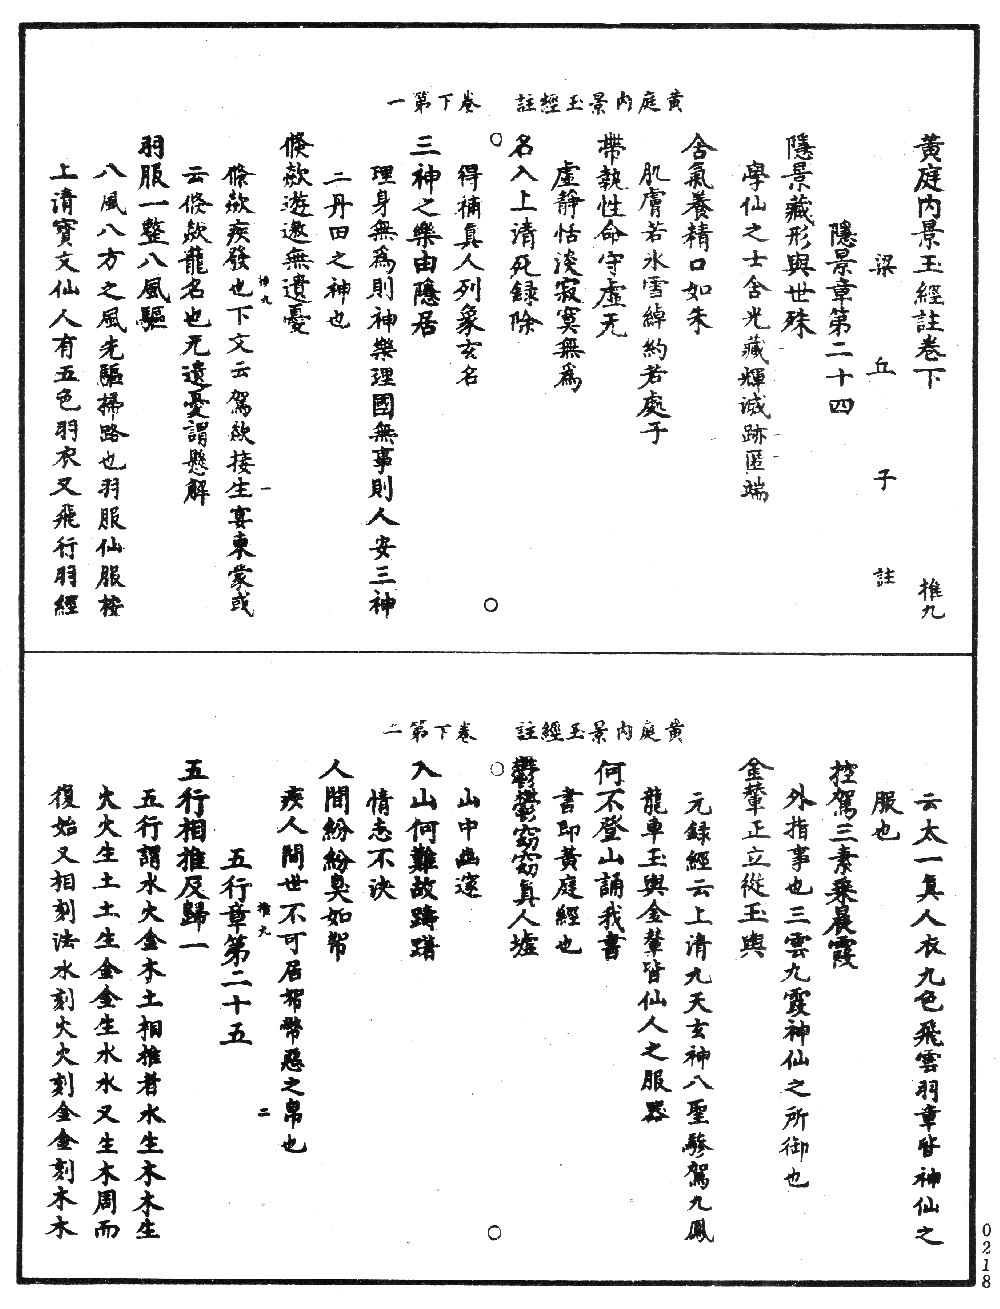 黃庭內景玉經註　卷下第一
黃庭內景玉經註卷下　推九
梁丘子註
隱景章第二十四
隱景藏形與世殊
學仙之士含光藏輝滅跡匿端
含氣養精口如朱
肌膚若氷雪綽約若處子
帶執性命守虛无
虛靜恬淡寂寞無為
名入上清死録除
得補真人列象玄名
三神之樂由隱居
理身無為則神樂理國無事則人安三神
三丹田之神也
倏欻遊遨無遺憂
倏欻疾發也下文云駕欻接生宴東蒙或
推九　一
云倏欻龍名也无遺憂謂懸解
羽服一整八風驅
八風八方之風先驅掃路也羽服仙服按
上清寶文仙人有五色羽衣又飛行羽經
黃庭內景玉經註　卷下第二
云太一真人衣九色飛雲羽章皆神仙之
服也
控駕三素乘晨霞
外指事也三雲九霞神仙之所御也
金輦正立從玉輿
元録經云上清九天玄神八聖驂駕九鳳
龍車玉輿金輦皆仙人之服器
何不登山誦我書
書即黃庭經也
鬱鬱窈窈真人墟
山中幽邃
入山何難故躊躇
情志不決
人間紛紛臭如帤
疾人間世不可居帤幣惡之帛也
推九　二
五行章第二十五
五行相推反歸一
五行謂水火金木土相推者水生木木生
火火生土土生金金生水水又生木周而
復始又相刻法水刻火火刻金金刻木木
0218